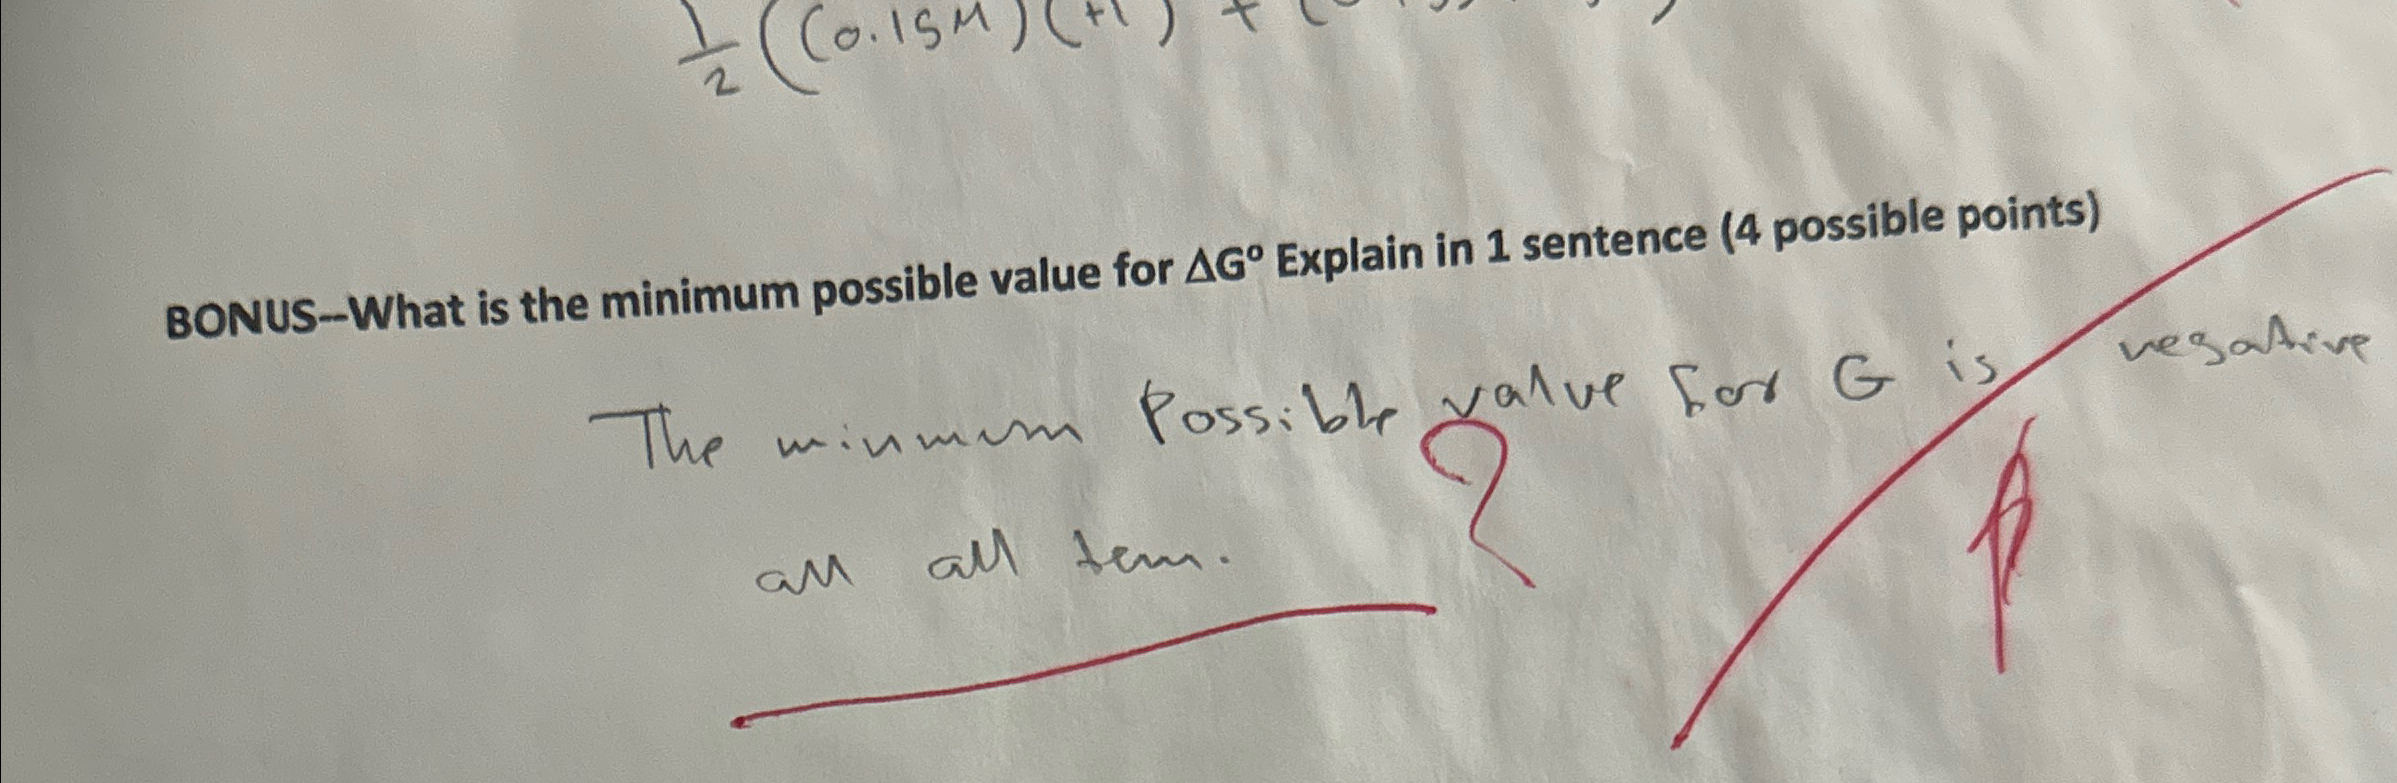 1/2 ((0.15M)(+1) + (
BONUS--What is the minimum possible value for ΔG° Explain in 1 sentence (4 possible points)
The minmum Possible value for G is negative
all all tem.
?